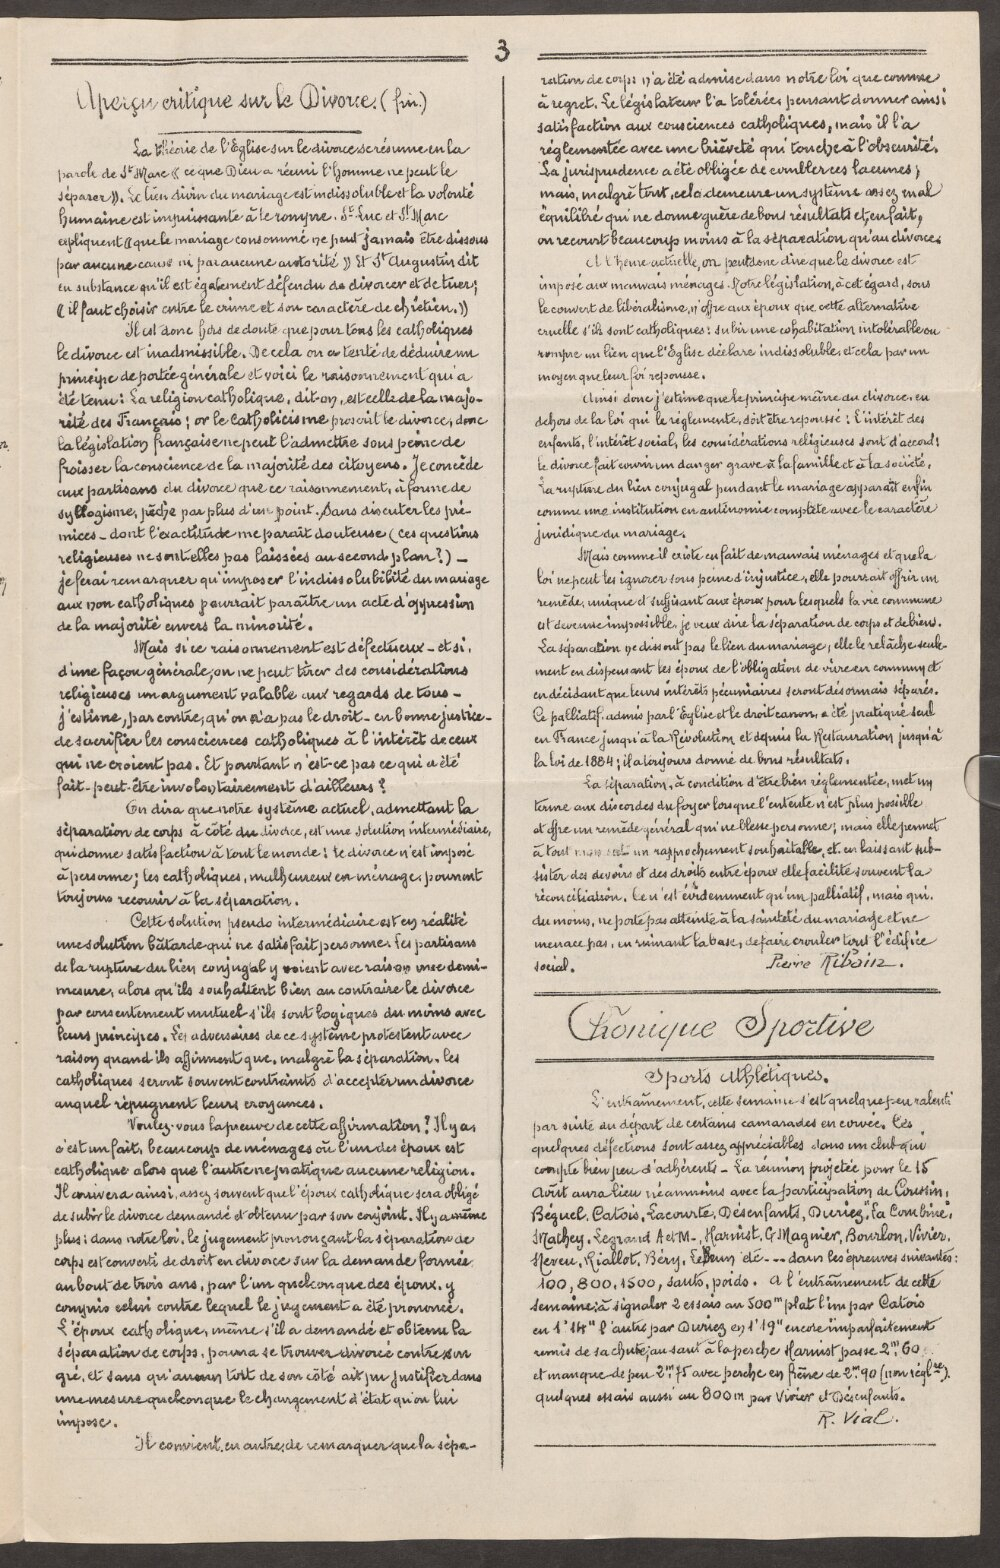 3
Aperçu critique sur le Divorce. (fin.)
La théorie de l'Eglise sur le divorce se résume en la
parole de St Marc « ce que Dieu a réuni l'homme ne peut le
séparer ». Le lien divin du mariage est indissoluble et la volonté
humaine est impuissante à le rompre. St Luc et St Marc
expliquent « que le mariage consommé ne peut jamais être dissous
par aucune cause ni par aucune autorité » Et St Augustin dit
en substance qu'il est également défendu de divorcer et de tuer;
« il faut choisir entre le crime et son caractère de chrétien. »
Il est donc hors de doute que pour tous les catholiques
le divorce est inadmissible. De cela on a tenté de déduire un
principe de portée générale et voici le raisonnement qui a
été tenu: La religion catholique, dit-on, est celle de la majo-
rité des Français; or le catholicisme proscrit le divorce, donc
la législation française ne peut l'admettre sous peine de
froisser la conscience de la majorité des citoyens. Je concède
aux partisans du divorce que ce raisonnement, à forme de
syllogisme, pêche par plus d'un point. Sans discuter les pré-
mices - dont l'exactitude me paraît douteuse (ces questions
religieuses ne sont-elles pas laissées au second plan?) -
je ferai remarquer qu'imposer l'indissolubilité du mariage
aux non catholiques pourrait paraître un acte d'oppression
de la majorité envers la minorité.
Mais si ce raisonnement est défectueux - et si,
d'une façon générale, on ne peut tirer des considérations
religieuses un argument valable aux regards de tous -
j'estime, par contre, qu'on n'a pas le droit - en bonne justice -
de sacrifier les consciences catholiques à l'intérêt de ceux
qui ne croient pas. Et pourtant n'est-ce pas ce qui a été
fait - peut-être involontairement d'ailleurs?
On dira que notre système actuel, admettant la
séparation de corps à côté du divorce, est une solution intermédiaire,
qui donne satisfaction à tout le monde: le divorce n'est imposé
à personne; les catholiques, malheureux en ménage, pourront
toujours recourir à la séparation.
Cette solution pseudo intermédiaire est en réalité
une solution bâtarde qui ne satisfait personne. Les partisans
de la rupture du lien conjugal y voient avec raison une demi-
mesure, alors qu'ils souhaitent bien au contraire le divorce
par consentement mutuel s'ils sont logiques du moins avec
leurs principes. Les adversaires de ce système protestent avec
raison quand ils affirment que, malgré la séparation, les
catholiques seront souvent contraints d'accepter un divorce
auquel répugnent leurs croyances.
Voulez-vous la preuve de cette affirmation? Il y a,
c'est un fait, beaucoup de ménages où l'un des époux est
catholique alors que l'autre ne pratique aucune religion.
Il arrivera ainsi, assez souvent que l'époux catholique sera obligé
de subir le divorce demandé et obtenu par son conjoint. Il y a même
plus: dans notre loi, le jugement prononçant la séparation de
corps est converti de droit en divorce sur la demande formée
au bout de trois ans, par l'un quelconque des époux, y
compris celui contre lequel le jugement a été prononcé.
L'époux catholique, même s'il a demandé et obtenu la
séparation de corps, pourra se trouver divorcé contre son
gré, et sans qu'aucun tort de son côté ait pu justifier dans
une mesure quelconque le changement d'état qu'on lui
impose.
Il convient, en outre, de remarquer que la sépa-
ration de corps n'a été admise dans notre loi que comme
à regret. Le législateur l'a tolérée, pensant donner ainsi
satisfaction aux consciences catholiques, mais il l'a
réglementée avec une brièveté qui touche à l'obscurité.
La jurisprudence a été obligée de combler ces lacunes;
mais, malgré tout, cela demeure un système assez mal
équilibré qui ne donne guère de bons résultats et, en fait,
on recourt beaucoup moins à la séparation qu'au divorce.
A l'heure actuelle, on peut donc dire que le divorce est
imposé aux mauvais ménages. Notre législation, à cet égard, sous
le couvert de libéralisme, n'offre aux époux que cette alternative
cruelle s'ils sont catholiques: subir une cohabitation intolérable ou
rompre un lien que l'Eglise déclare indissoluble, et cela par un
moyen que leur foi repousse.
Ainsi donc j'estime que le principe même du divorce, en
dehors de la loi qui le réglemente, doit être repoussé: l'intérêt des
enfants, l'intérêt social, les considérations religieuses sont d'accord:
le divorce fait courir un danger grave à la famille et à la société.
La rupture du lien conjugal pendant le mariage apparaît enfin
comme une institution en antinomie complète avec le caractère
juridique du mariage.
Mais comme il existe en fait de mauvais ménages et que la
loi ne peut les ignorer sous peine d'injustice, elle pourrait offrir un
remède, unique et suffisant aux époux pour lesquels la vie commune
est devenue impossible, je veux dire la séparation de corps et de biens.
La séparation ne dissout pas le lien du mariage; elle le relâche seule-
ment en dispensant les époux de l'obligation de vivre en commun et
en décidant que leurs intérêts pécuniaires seront désormais séparés.
Ce palliatif, admis par l'Eglise et le droit canon, a été pratiqué seul
en France jusqu'à la Révolution et depuis la Restauration jusqu'à
la loi de 1884; il a toujours donné de bons résultats.
La séparation, à condition d'être bien réglementée, met un
terme aux discordes du foyer lorsque l'entente n'est plus possible
et offre un remède général qui ne blesse personne; mais elle permet
à tout un rapprochement souhaitable, et en laissant sub-
sister des devoirs et des droits entre époux elle facilite souvent la
réconciliation. Ce n'est évidemment qu'un palliatif, mais qui,
du moins, ne porte pas atteinte à la sainteté du mariage et ne
menace pas, en ruinant la base, de faire crouler tout l'édifice
social. Pierre Riboin.
Chronique Sportive
Sports Athlétiques.
L'entraînement, cette semaine s'est quelque peu ralenti
par suite du départ de certains camarades en corvée. Ces
quelques défections sont assez appréciables dans un club qui
compte bien peu d'adhérents - La réunion projetée pour le 15
Août aura lieu néanmoins avec la participation de Coussin,
Béguel, Catois, Lacourte, Désenfants, Duriez, La Combine,
Mathey, Legrand A et M -, Harnist, G Magnier, Bourlon, Vivier,
Neveu, Riallot, Béry, Lebrun etc --- dans les épreuves suivantes:
100, 800, 1500, sauts, poids. A l'entraînement de cette
semaine; à signaler 2 essais au 500m plat l'un par Catois
en 1' 14" l'autre par Duriez en 1' 19" encore imparfaitement
remis de sa chute; au saut à la perche Harnist passe 2m,60
et manque de peu 2m,75 avec perche en frêne de 2m,90 (non réglre).
quelques essais aussi au 800m par Vivier et Désenfants.
R. Vial.